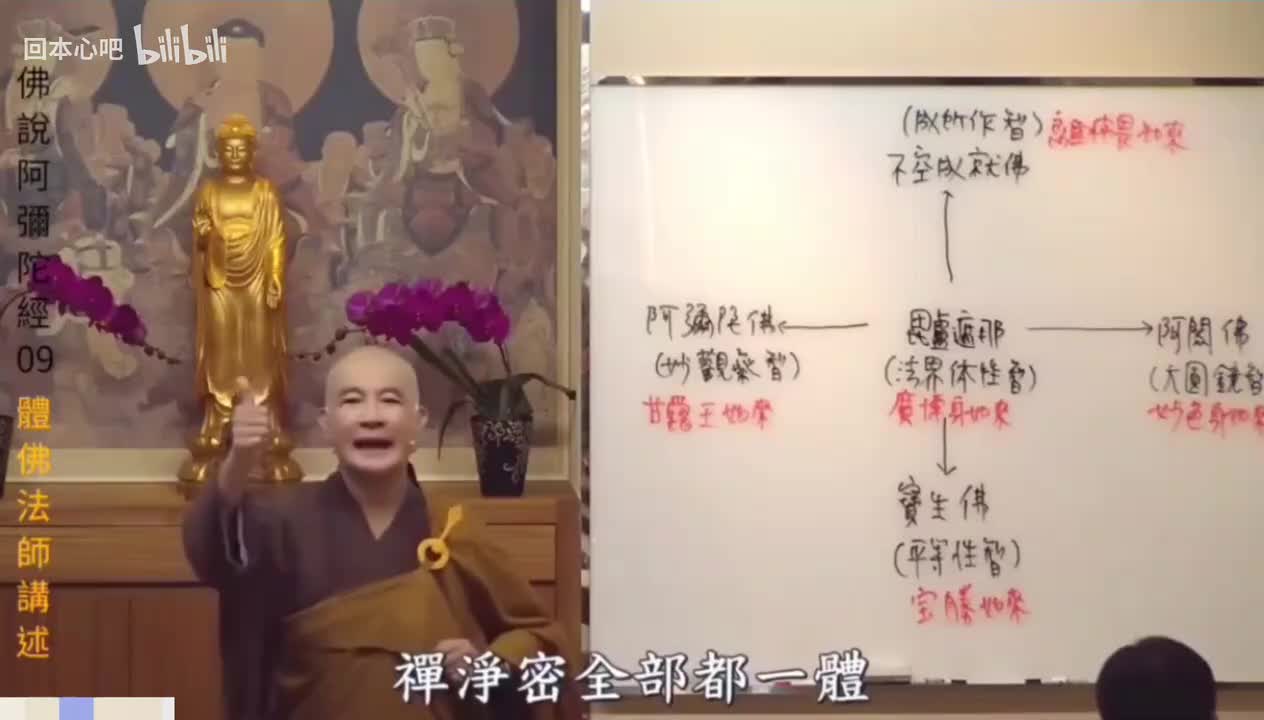 回本心吧 bilibili
佛說阿彌陀經09 體佛法師講述
(成所作智) 離怖畏如來
不空成就佛
阿彌陀佛
(妙觀察智)
甘露王如來
毘盧遮那
(法界体性智)
廣博身如來
阿閦佛
(大圓鏡智
妙色身如來
寶生佛
(平等性智)
宝勝如來
禪淨密全部都一體